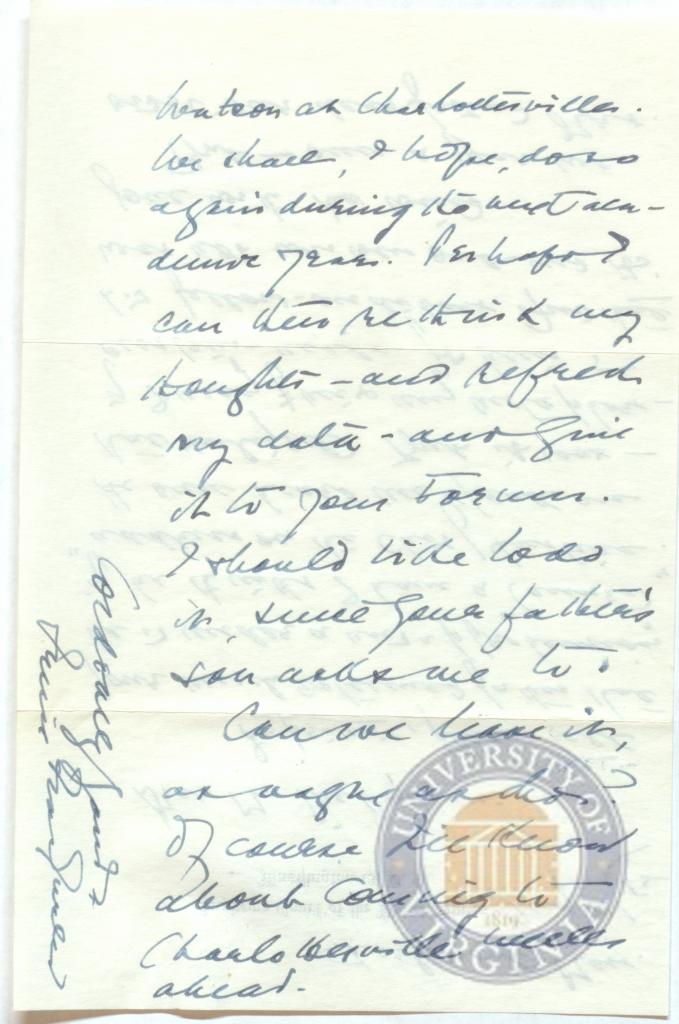 Watson at Charlottesville.
We shall, I hope, do so
again during the next aca-
demic year. Perhaps I
can then rethink my
thoughts - and refresh
my data - and give
it to your Forum.
I should like to do
it, since your father's
son asks me to.
Can we leave it,
as vague as this?
Of course I'll know
about coming to
Charlottesville weeks
ahead.
Cordially and
UNIVERSITY OF
VIRGINIA
1819